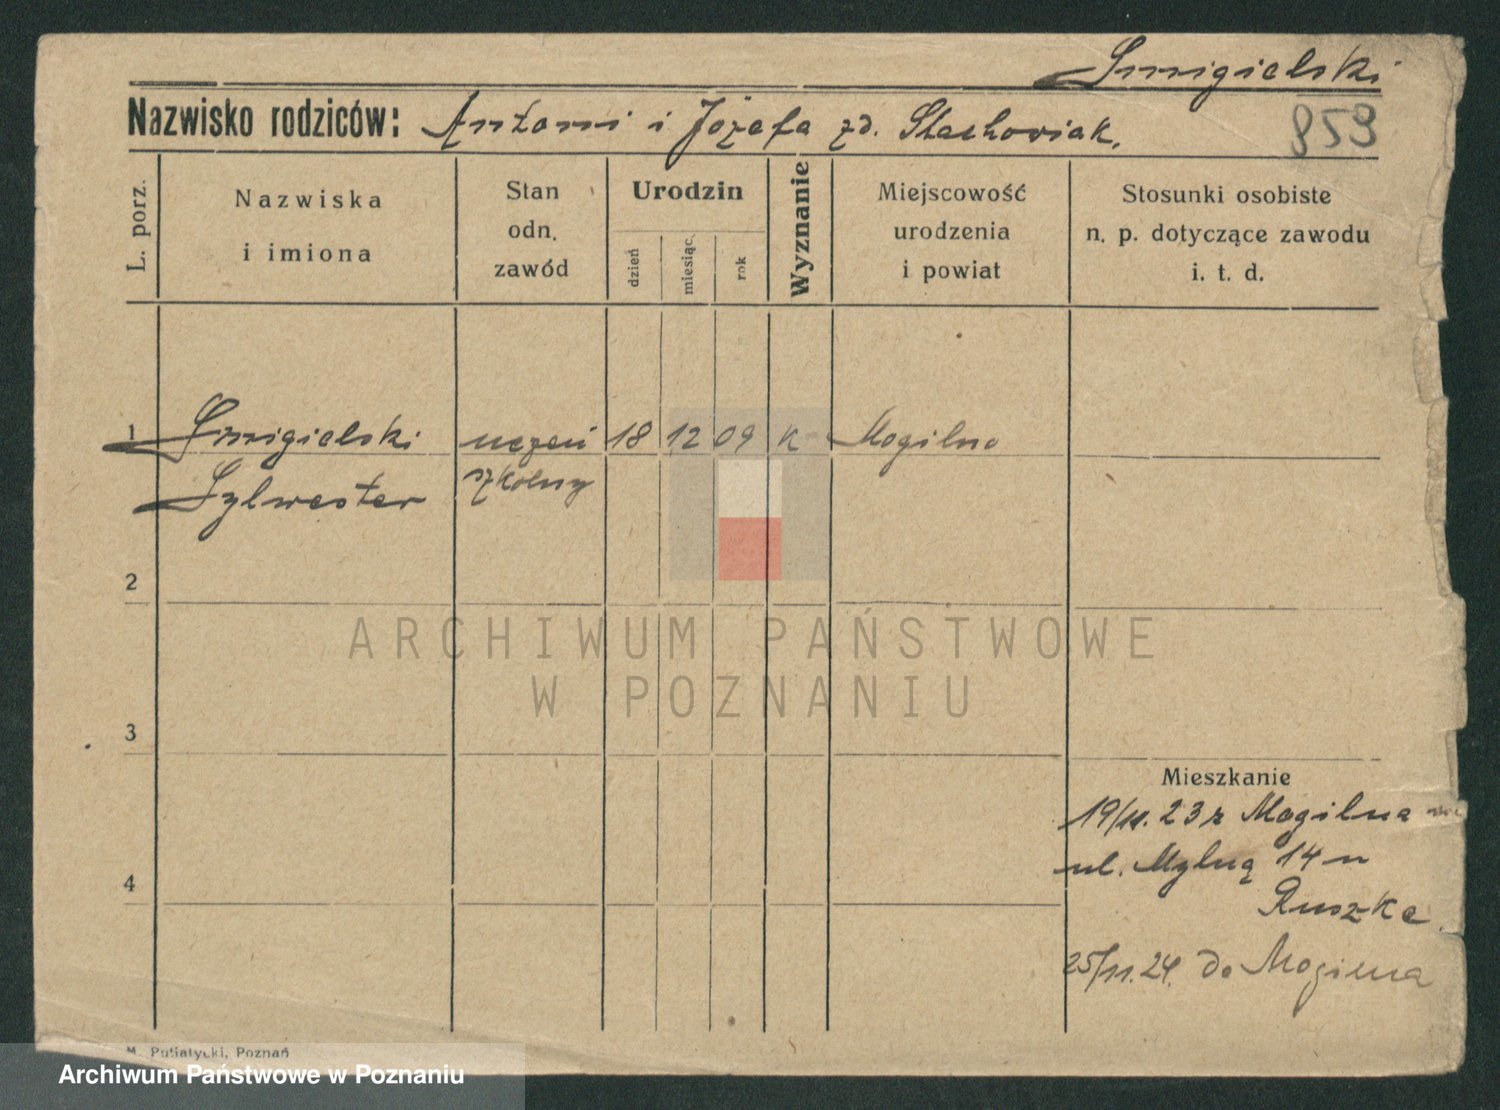 Smigielski
Nazwisko rodziców: Antoni i Józefa zd. Stachowiak.
853
L. porz.
Nazwiska
i imiona
Stan
odn.
zawód
Urodzin
dzień
miesiąc
rok
Wyznanie
Miejscowość
urodzenia
i powiat
Stosunki osobiste
n. p. dotyczące zawodu
i. t. d.
1 Smigielski uczeń 18 12 09 k Mogilno
Sylwester szkolny
2
ARCHIWUM PAŃSTWOWE
W POZNANIU
3
Mieszkanie
19/11.23 z Mogilna
ul. Mylną 14 u
Ruszke
4
25/11.24. do Mogilna
M. Putiatycki, Poznań
Archiwum Państwowe w Poznaniu